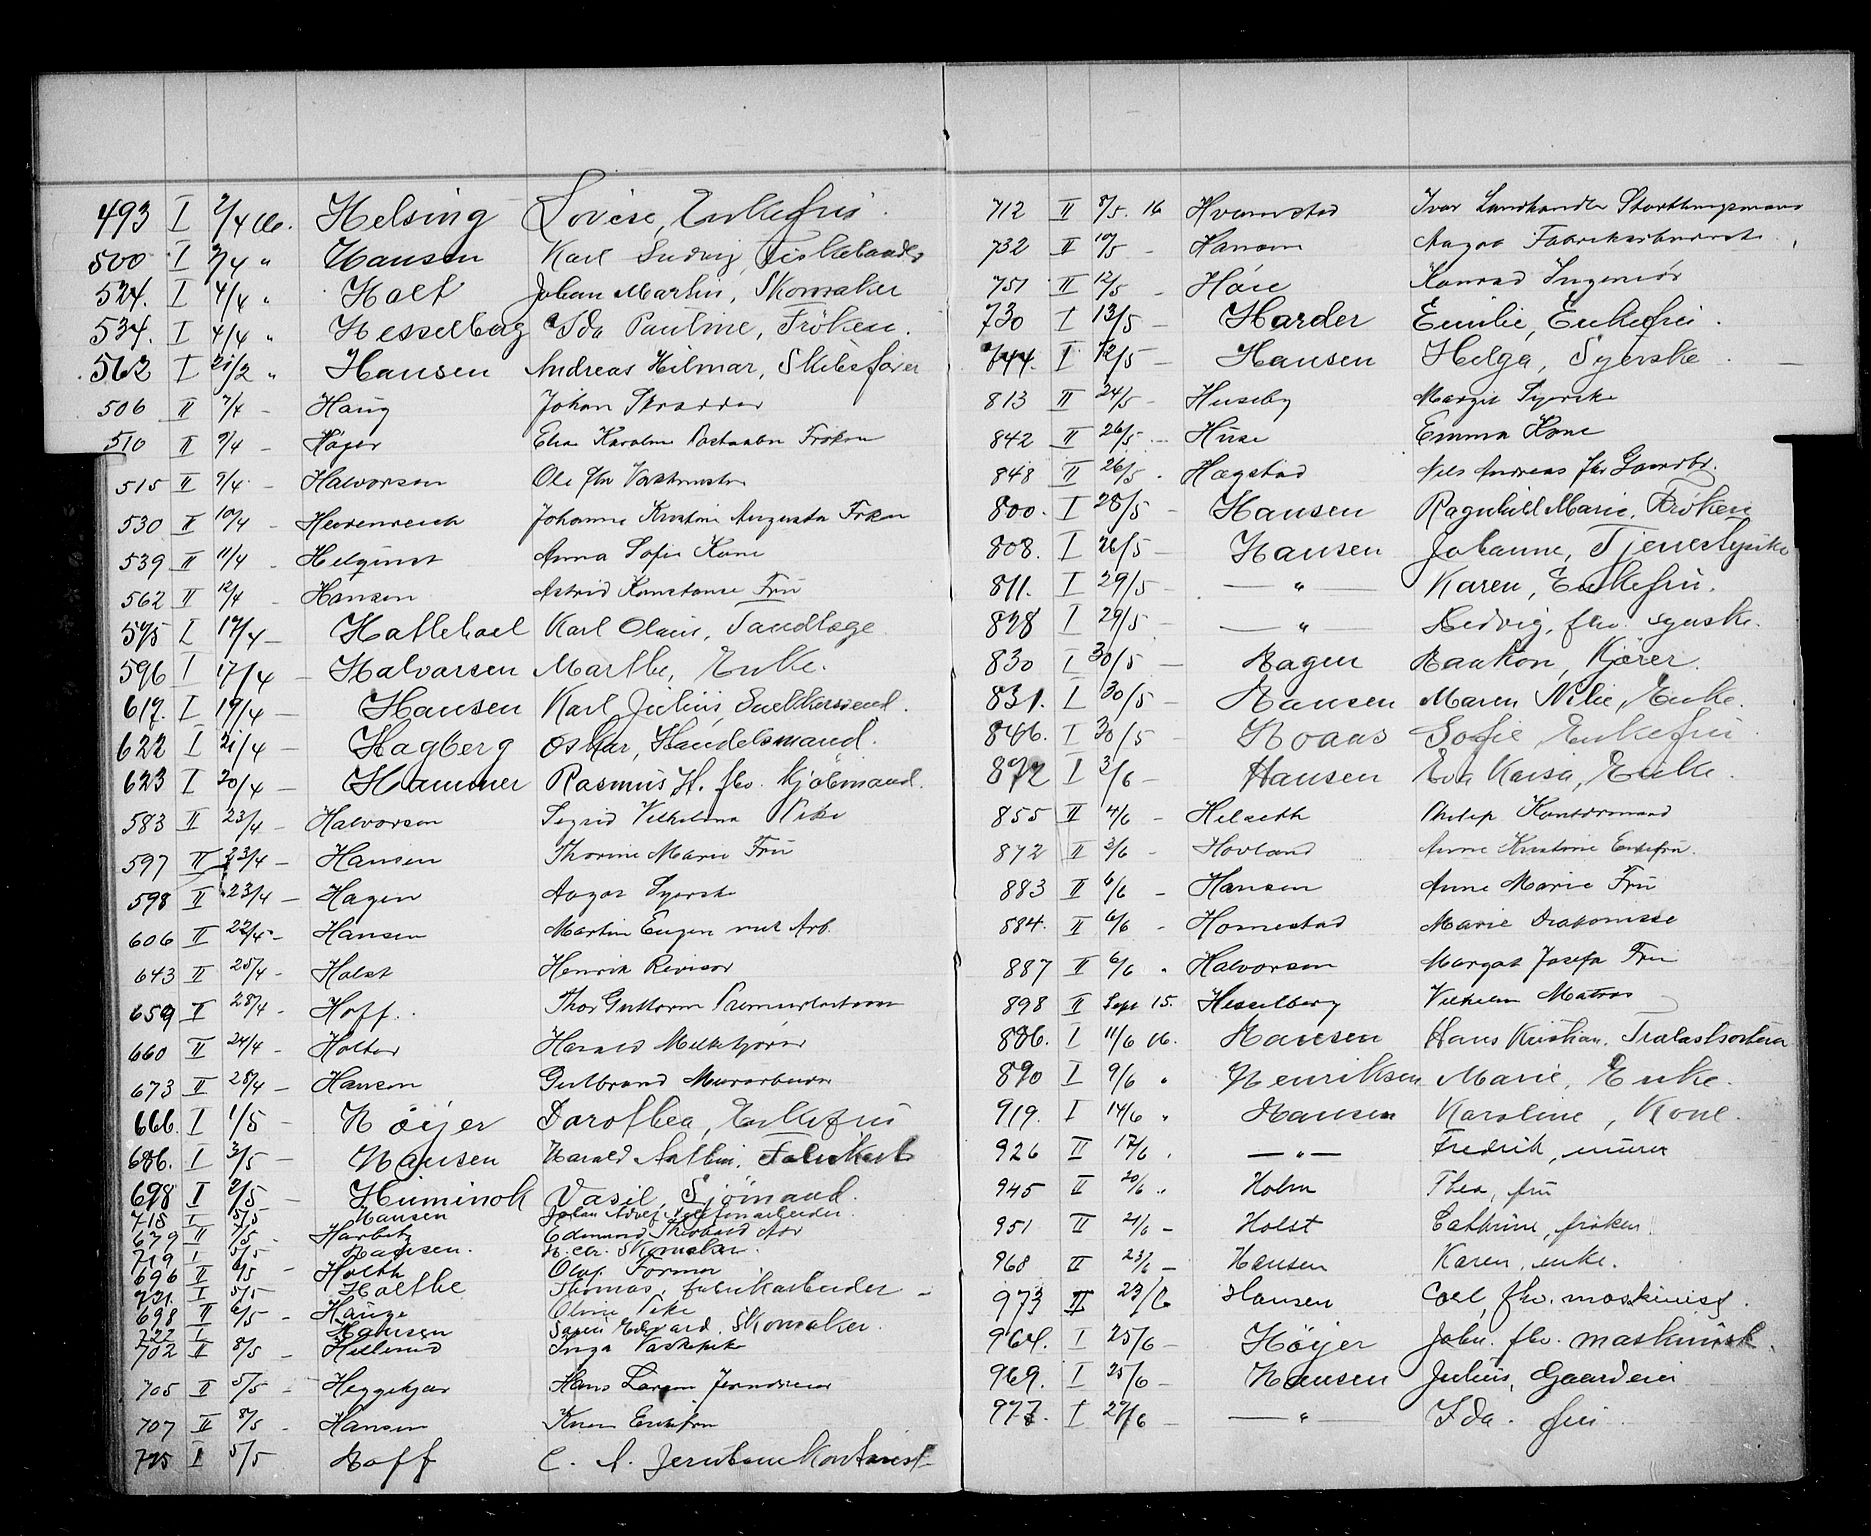 493 I 2/4 16. Helsing Lovise, Enkefru.
500 I 3/4 " Hansen Karl Ludvig, Fiskehandler
524. I 4/4 " Holt Johan Martin, Skomaker
534. I 4/4 " Hesselberg Ida Pauline, Frøken.
562 I 21/2 " Hansen Andreas Hilmar, Skibsfører
506 II 7/4 - Haug Johan Skrædder
510 II 9/4 - Høyer Elise Karoline Frøken
515 II 9/4 - Halvorsen Ole fhv
530 II 10/4 - Heerenreich Johanne Kristine Augusta Frøken
539 II 11/4 - Helqvist Anna Sofie Kone
562 II 12/4 - Hansen Astrid Konstanse Fru
575 I 17/4 - Hatlehoel Karl Olaus, Tandlæge
596 I 17/4 - Halvorsen Marthe, Enke.
617. I 19/4 - Hansen Karl Julius, Snekkersvend.
622 I 21/4 - Hagberg Oskar, Handelsmand.
623 I 20/4 - Hammer Rasmus H. fhv. Kjøbmand.
583 II 23/4 - Halvorsen Sigrid Vilhelmine Pike
597 II 23/4 - Hansen Thorine Marie Fru
598 II 23/4 - Hagen Aagot Syerske
606 II 22/4 - Hansen Martin Eugen Arb.
643 II 25/4 - Holst Henrik Revisor
659 II 28/4 - Hoff. Thor Guttorm Premierløitnant
660 II 24/4 - Holter Harald Melkekjører
673 II 28/4 - Hansen Gulbrand Murarbeider
666. I 1/5 - Høijer Dorothea, Enkefru
686. I 3/5 - Hansen Harald Fabrikarb
698 I 2/5 - Huminok Vasil, Sjømand.
718 I 5/5 Hansen Johan Adolf, Telefonarbeider
679 II 7/5 - Harbitz Edmund Theobald
719 I 5/5 Hansen. H. Chr. Skomaker.
696 II 6/5 - Holth Olaf Former
721. I 5/5 Holthe Thomas, fabrikarbeider -
698 II 6/5 - Hauge Oline Pike
722 I Hansen Søren Edvard. Skomaker.
702 II 8/5 - Hellerud Inga Vaskepike
705 II 5/5 - Heggekjær Hans Larsen Jerndreier
707 II 8/5 - Hansen Karen Enkefru
725 I 5/5 Hoff C. A. Jernbanekontorist
712 II 8/5. 16 Hvamstad Ivar Landhandler Storthingsmand
732 II 10/5 - Hansen Aagot Fabrikarbeiderske
751 II 12/5 - Høie Konrad Ingeniør
730 I 13/5 - Harder Emilie, Enkefru.
744. I 12/5 - Hansen Helga, Syerske. -
813 II 24/5 - Huseby Margit Syerske
842 II 26/5 - Huse Emma Kone
848 II 26/5 - Hægstad Nils Andreas fhv Gaardbr.
800. I 28/5 - Hansen Ragnhild Marie, Frøken
808. I 26/5 - Hansen Johanne, Tjenestepike
811. I 29/5 - — " — Karen, Enkefru.
828 I 29/5 - — " — Hedvig, fhv. syerske.
830 I 30/5 - Hagen Haakon, Kjører.
831. I 30/5 - Hansen Maren Nilie, Enke.
846. I 30/5 - Hoaas Sofie Enkefru.
872 I 3/6 - Hansen Eva Kaisa, Enke.
855 II 4/6 - Helseth Philip Kontormand
872 II 3/6 - Hovland Anne Kristine Enkefru.
883 II 6/6 - Hansen Anne Marie Fru
884. II 6/6 - Homestad Marie Diakonisse
887 II 6/6 " Halvorsen Margot Josefa Fru
898 II Sept 15. Hesselberg Vilhelm Matros
886. I 11/6 16. Hansen Hans Kristian. Trælastsorterer
890 I 9/6 " Henriksen Marie, Enke.
919. I 14/6 " Hansen Karoline, Kone.
926 II 17/6 " — " — Fredrik, murer
945 II 20/6 " Holm Thea, fru
951 II 21/6 - Holst Cathrine, frøken
968 II 23/6 - Hansen Karen, enke.
973 II 23/6 Hansen Carl fhv. maskinist.
964. I 25/6 - Høijer Johs. fhv. maskinist.
969. I 25/6 - Hansen Julius, Gaardeier
977. I 27/6 - — " — Ida. fru.